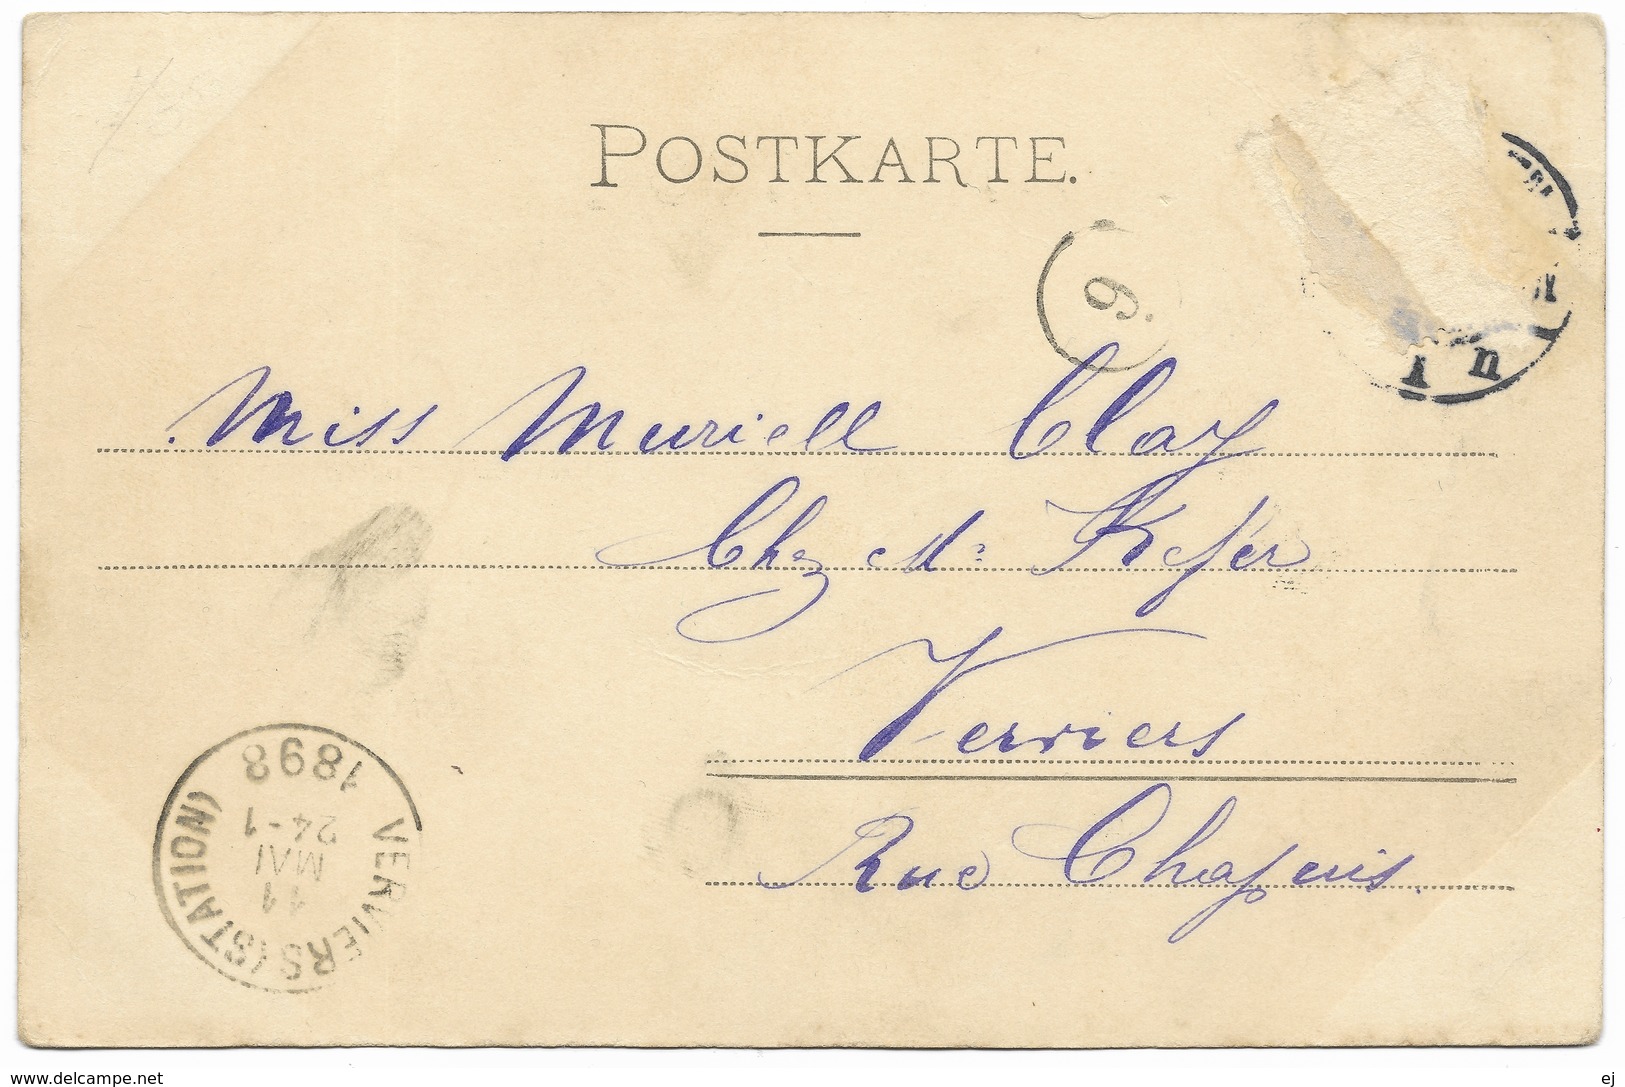 POSTKARTE.
6.
Miss Muriell Clay
Chez Mr Kefer
Verviers
Rue Chapuis.
VERVIERS (STATION)
11
MAI
24-1
1898
www.delcampe.net
ej